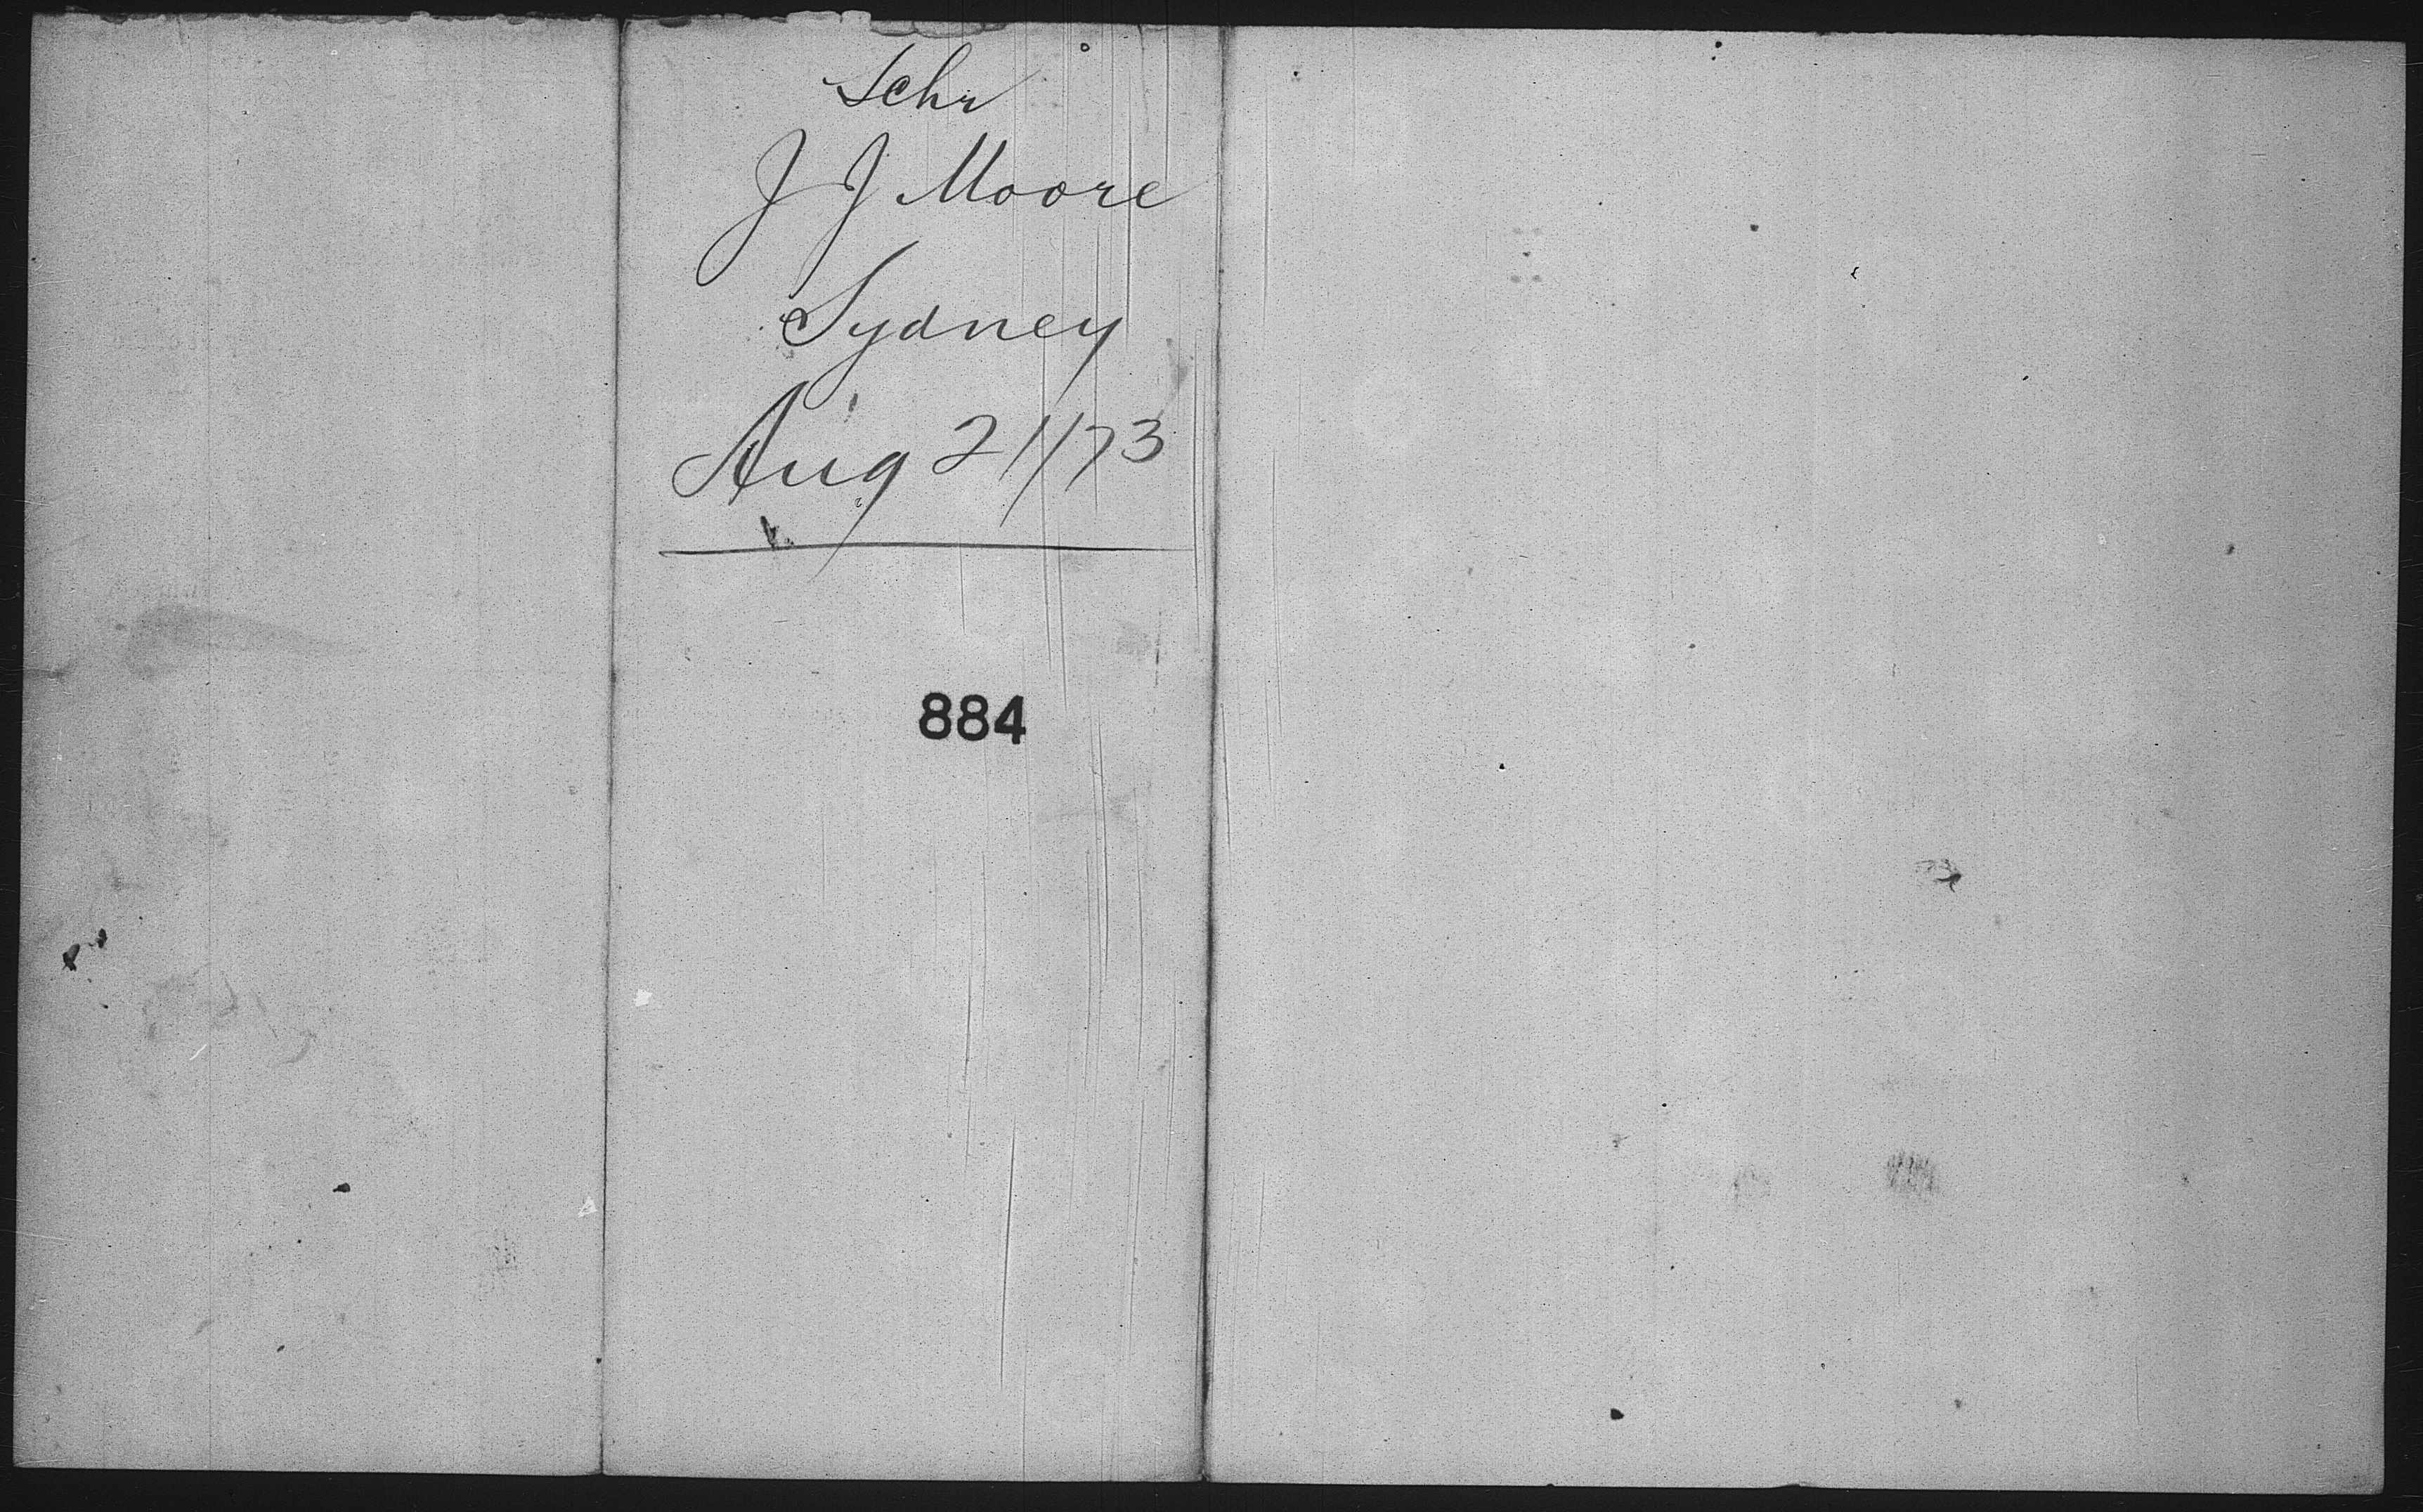 Schr
J J Moore
Sydney
Aug 21/73
884